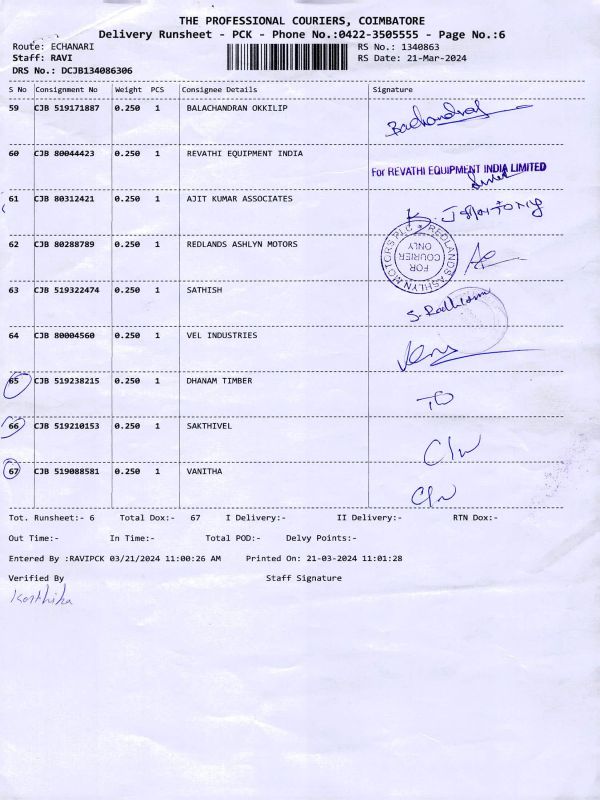 THE PROFESSIONAL COURIERS, COIMBATORE
Delivery Runsheet - PCK - Phone No.:0422-3505555 - Page No.:6
Route: ECHANARI RS No.: 1340863
Staff: RAVI RS Date: 21-Mar-2024
DRS No.: DCJB134086306
S No Consignment No Weight PCS Consignee Details Signature
59 CJB 519171887 0.250 1 BALACHANDRAN OKKILIP
60 CJB 80044423 0.250 1 REVATHI EQUIPMENT INDIA
For REVATHI EQUIPMENT INDIA LIMITED
61 CJB 80312421 0.250 1 AJIT KUMAR ASSOCIATES
62 CJB 80288789 0.250 1 REDLANDS ASHLYN MOTORS
REDLANDS ASHLYN MOTORS PLC
FOR
COURIER
ONLY
63 CJB 519322474 0.250 1 SATHISH
64 CJB 80004560 0.250 1 VEL INDUSTRIES
65 CJB 519238215 0.250 1 DHANAM TIMBER
66 CJB 519210153 0.250 1 SAKTHIVEL
67 CJB 519088581 0.250 1 VANITHA
Tot. Runsheet:- 6 Total Dox:- 67 I Delivery:- II Delivery:- RTN Dox:-
Out Time:- In Time:- Total POD:- Delvy Points:-
Entered By :RAVIPCK 03/21/2024 11:00:26 AM Printed On: 21-03-2024 11:01:28
Verified By Staff Signature
Karthika